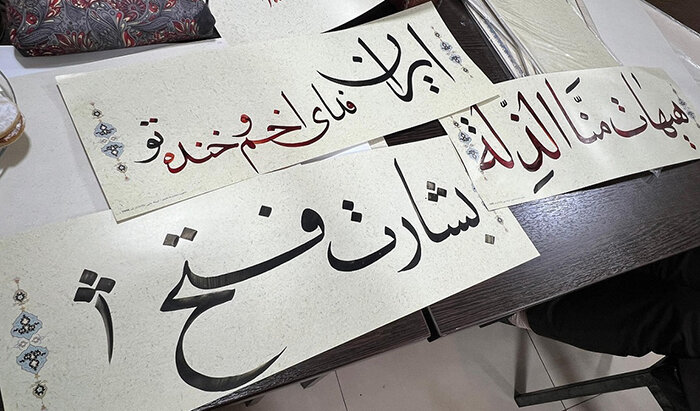 ایران فدای اخم و خنده تو
هیهات منّا الذِلّة
بشارت فتح